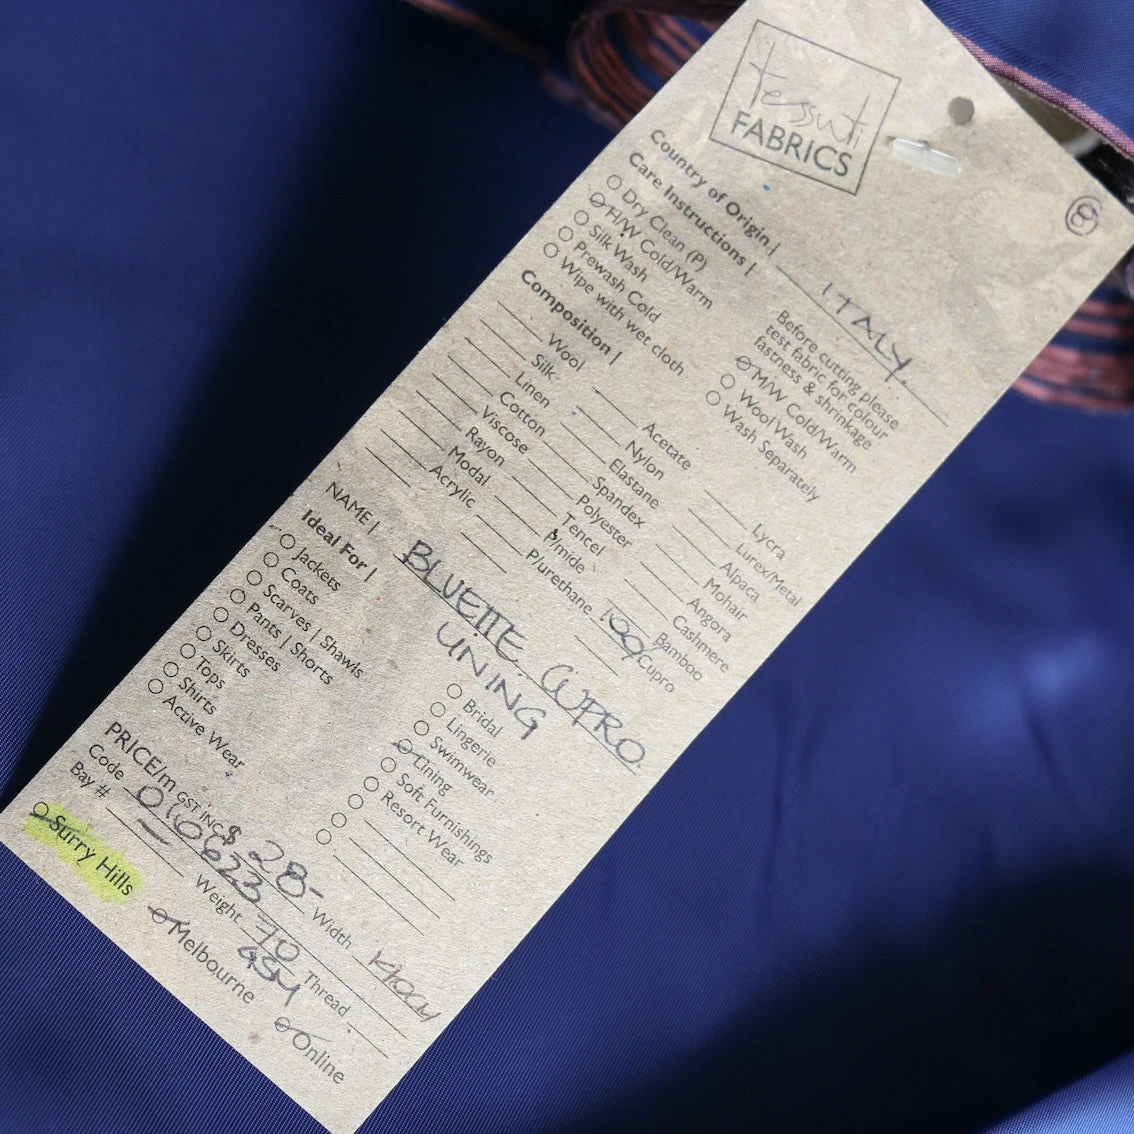 tessuti
FABRICS
Country of Origin | ITALY
Care Instructions |
Before cutting please
test fabric for colour
fastness & shrinkage
Dry Clean (P)
H/W Cold/Warm
Silk Wash
Prewash Cold
Wipe with wet cloth
M/W Cold/Warm
Wool Wash
Wash Separately
Composition |
Wool
Silk
Linen
Cotton
Viscose
Rayon
Modal
Acrylic
Acetate
Nylon
Elastane
Spandex
Polyester
Tencel
P/mide
P/urethane
Lycra
Lurex/Metal
Alpaca
Mohair
Angora
Cashmere
Bamboo
100% Cupro
NAME | BLUETTE CUPRO
LINING
Ideal For |
Jackets
Coats
Scarves | Shawls
Pants | Shorts
Dresses
Skirts
Tops
Shirts
Active Wear
Bridal
Lingerie
Swimwear
Lining
Soft Furnishings
Resort Wear
PRICE/m GST INC $ 28-
Code
Width
Bay #
Weight 70
GSM
Thread
Surry Hills
Melbourne
Online